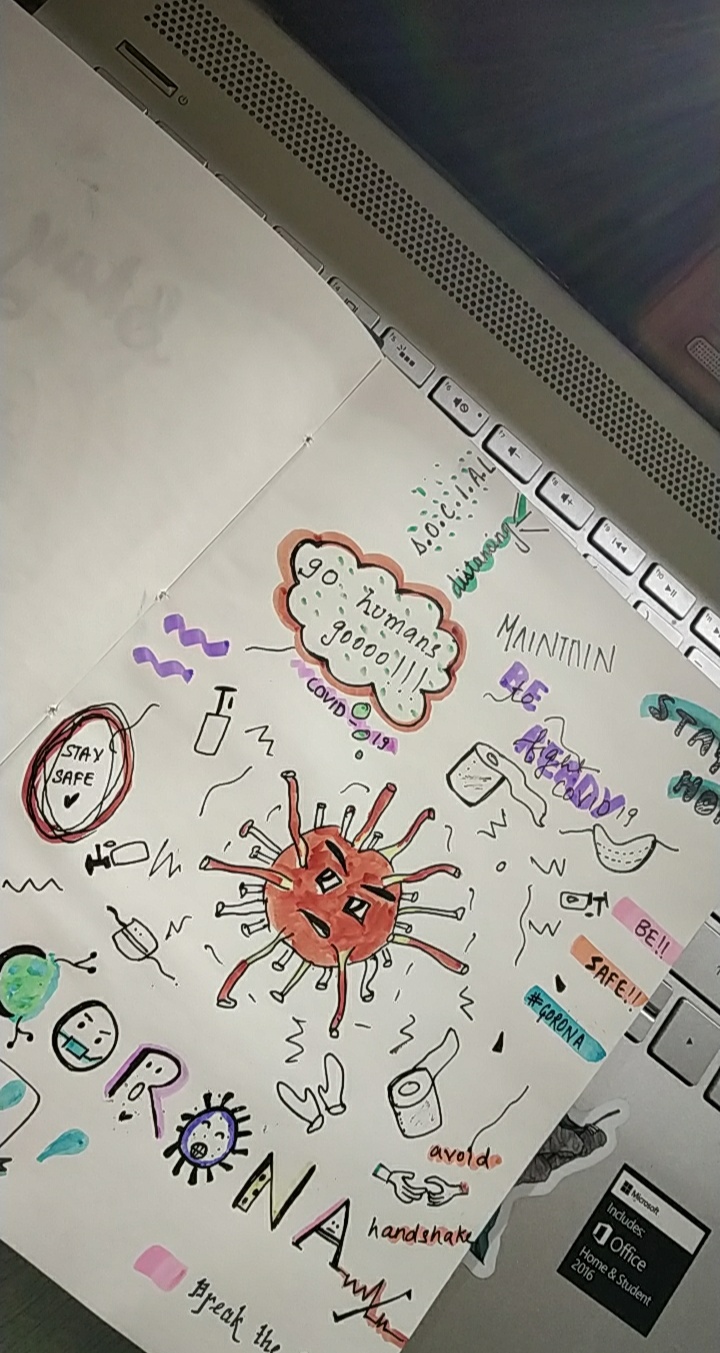 S.O.C.I.A.L
distancing
go humans
goooo!!!
MAINTAIN
COVID-19
BE
to
READY
fight
COVID19
STAY
STAY
SAFE
BE!!
SAFE!!
#GORONA
ORONA
avoid
handshake
Break the
Microsoft
Includes:
Office
Home & Student
2016